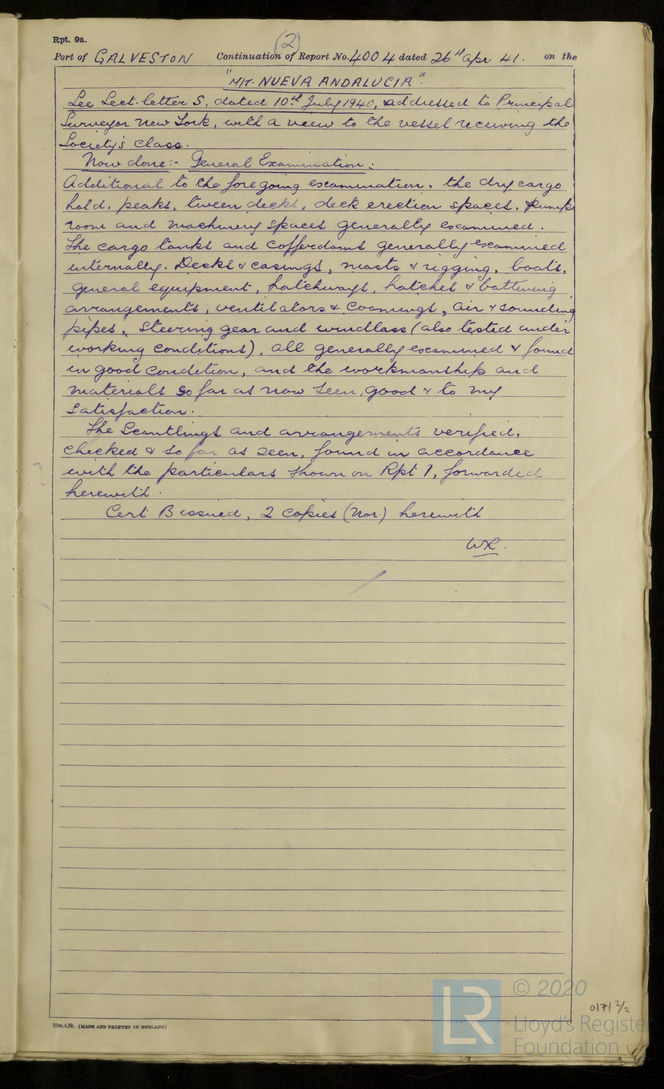 Rpt. 9a.
(2)
Port of GALVESTON Continuation of Report No. 4004 dated 26th Apr 41. on the
"M/T. NUEVA ANDALUCIA".
See Sect. letter S, dated 10th July 1940, addressed to Principal
Surveyor New York, with a view to the vessel receiving the
Society's class.
Now done:- General Examination:
Additional to the foregoing examination. the dry cargo
hold, peaks, tween decks, deck erection spaces, pump
room and machinery spaces generally examined.
The cargo tanks and cofferdams generally examined
internally. Decks & casings, masts & rigging, boats,
general equipment, hatchways, hatches & battening
arrangements, ventilators & coamings, air & sounding
pipes, steering gear and windlass (also tested under
working conditions), all generally examined & found
in good condition, and the workmanship and
materials so far as now seen, good & to my
satisfaction.
The Scantlings and arrangements verified,
checked & so far as seen, found in accordance
with the particulars shown on Rpt 1, forwarded
herewith.
Cert B issued, 2 copies (Nor) herewith
10m.4.39. (MADE AND PRINTED IN ENGLAND)
LR © 2020
Lloyd's Register
Foundation
0171 2/2